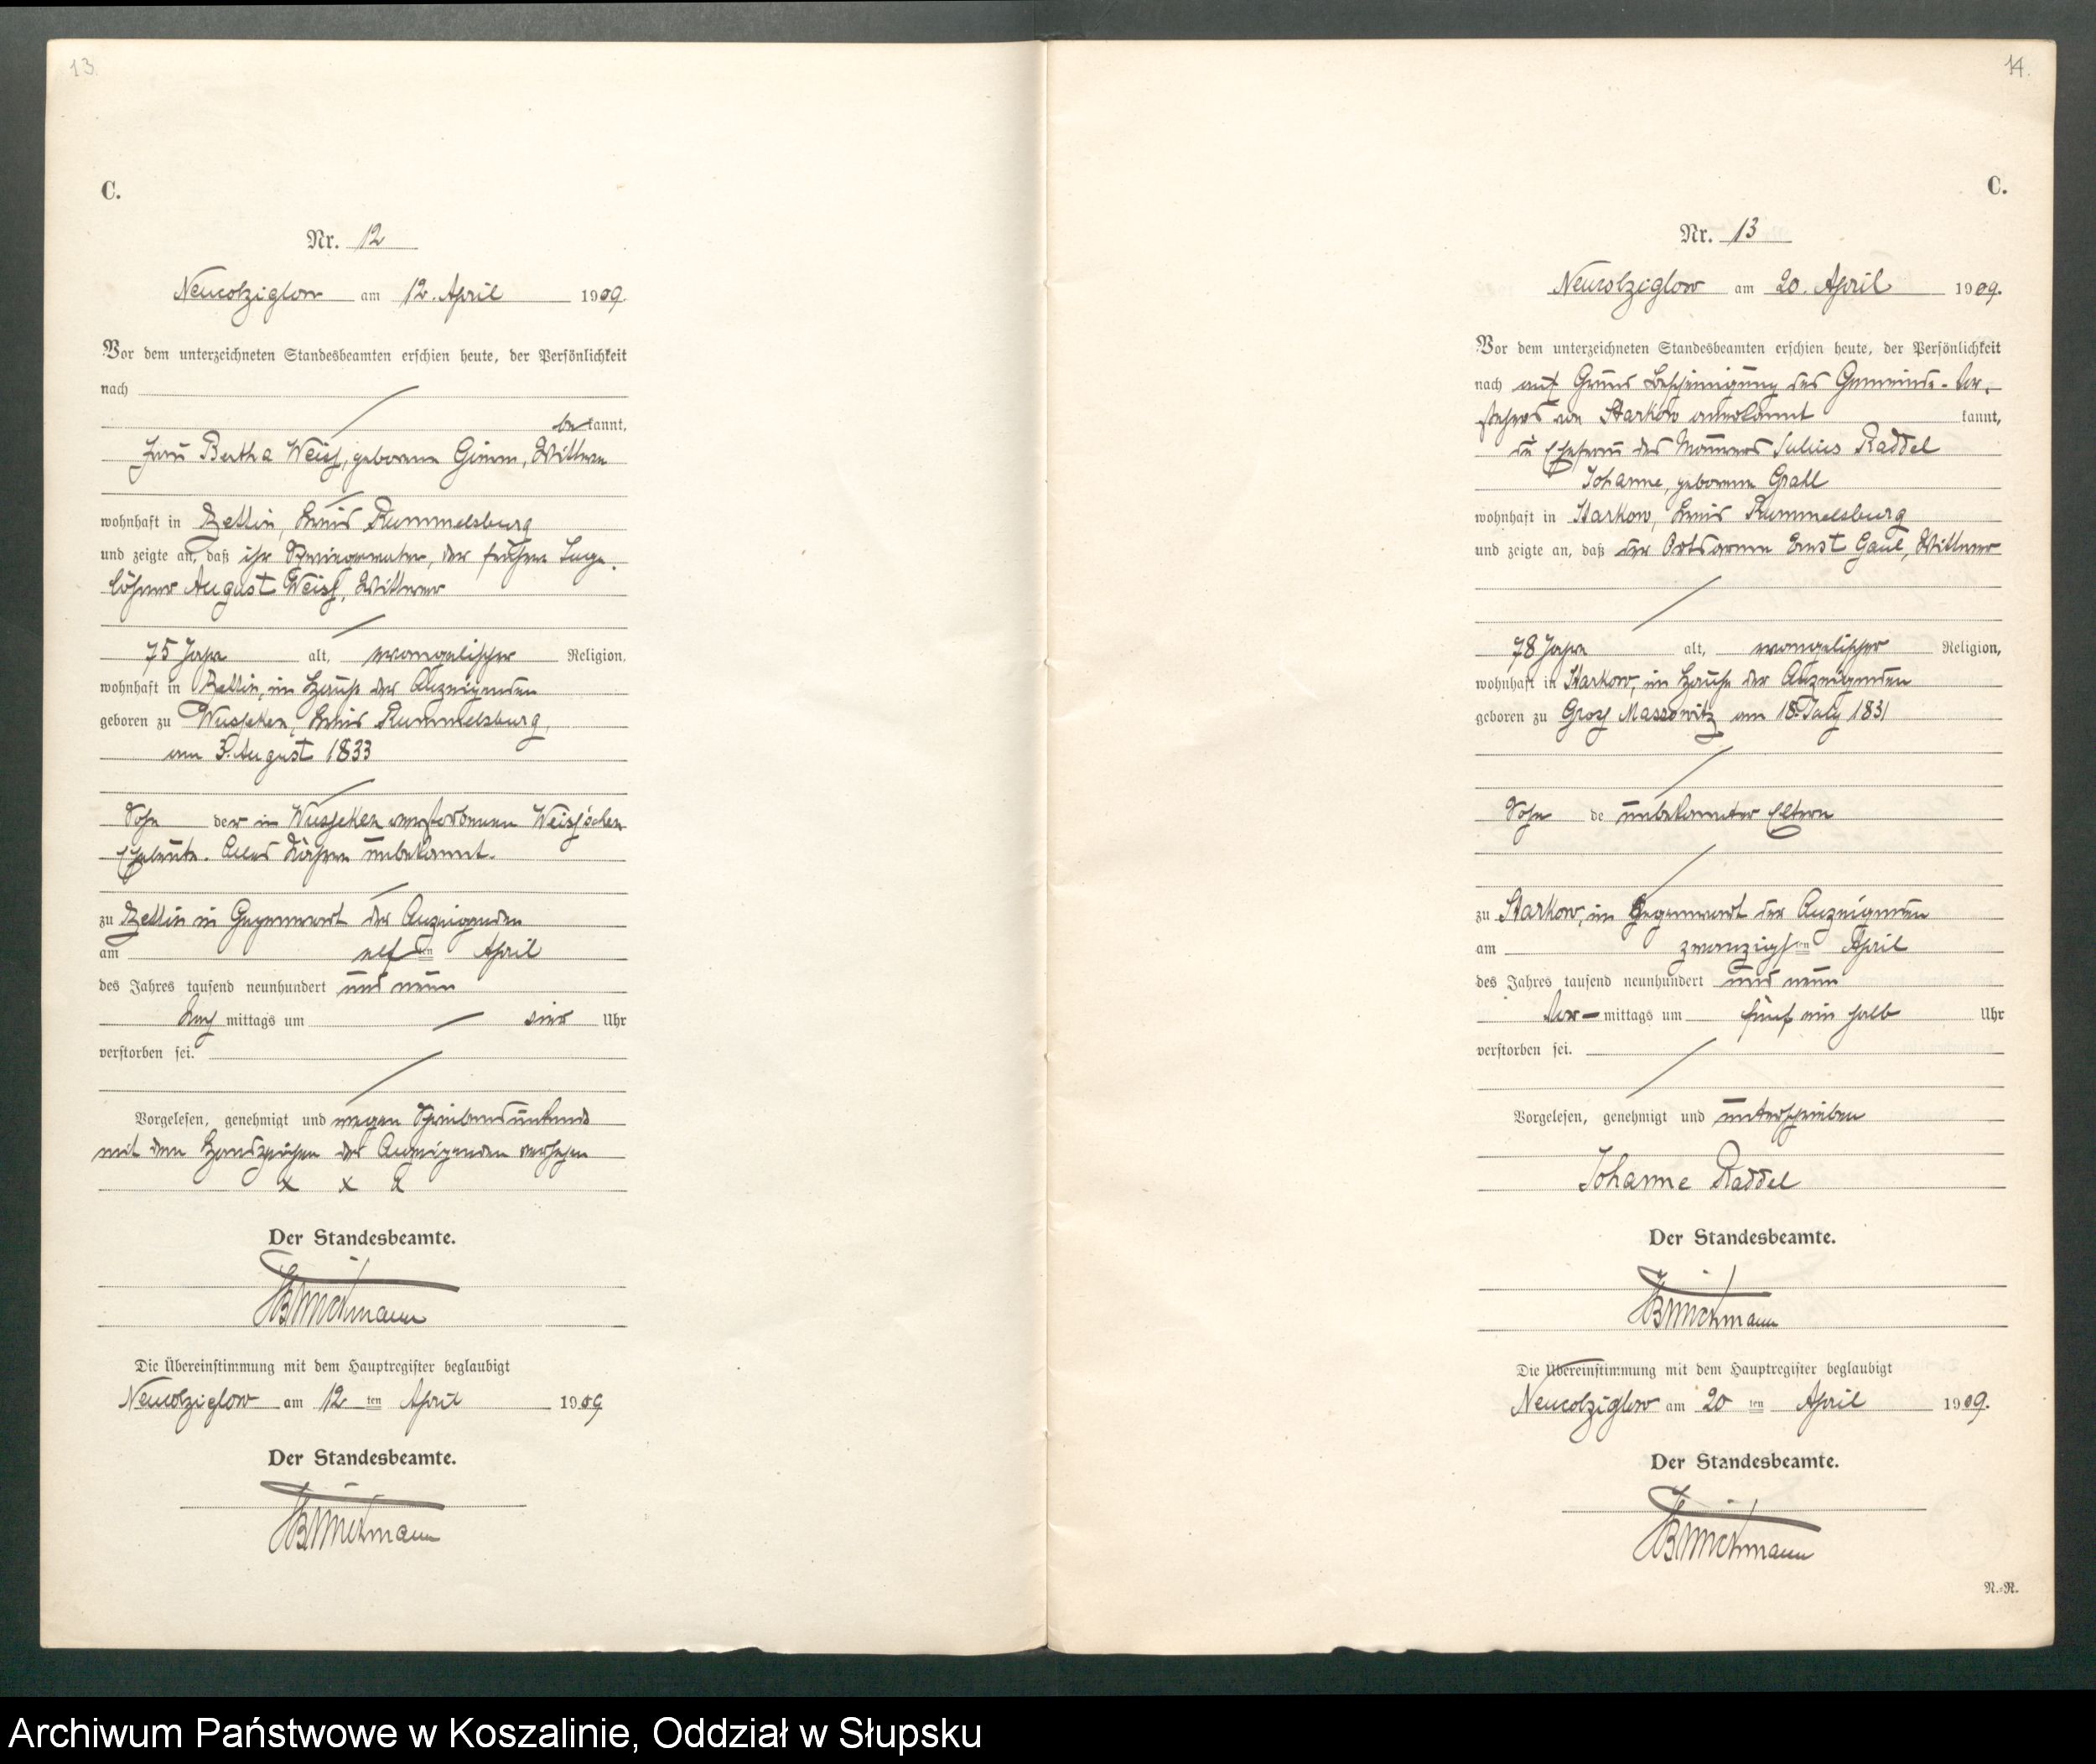 13.
C.
Nr. 12
Neukolziglow am 12. April 1909.
Vor dem unterzeichneten Standesbeamten erschien heute, der Persönlichkeit
nach
bekannt,
Frau Bertha Weiß, geborene Grimm, Wittwe
wohnhaft in Zettin, Kreis Rummelsburg
und zeigte an, daß ihr Schwiegervater, der frühere Tage-
löhner August Weiß, Wittwer
75 Jahre alt, evangelischer Religion,
wohnhaft in Zettin, im Hause der Anzeigenden
geboren zu Wusseken, Kreis Rummelsburg,
am 3. August 1833
Sohn der in Wusseken verstorbenen Weiß'schen
Eheleute. Alles Nähere unbekannt.
zu Zettin in Gegenwart der Anzeigenden
am elften April
des Jahres tausend neunhundert und neun
Nachmittags um vier Uhr
verstorben sei.
Vorgelesen, genehmigt und wegen Schreibensunkunde
mit dem Handzeichen der Anzeigenden versehen
x x x
Der Standesbeamte.
Die Übereinstimmung mit dem Hauptregister beglaubigt
Neukolziglow am 12 ten April 1909
Der Standesbeamte.
14.
C.
Nr. 13
Neukolziglow am 20. April 1909.
Vor dem unterzeichneten Standesbeamten erschien heute, der Persönlichkeit
nach auf Grund Bescheinigung des Gemeinde-Vor-
stehers von Starkow anerkannt kannt,
die Ehefrau des Maurers Julius Raddel
Johanne, geborene Grall
wohnhaft in Starkow, Kreis Rummelsburg
und zeigte an, daß der Ortsarme Ernst Gaul, Wittwer
78 Jahre alt, evangelischer Religion,
wohnhaft in Starkow, im Hause der Anzeigenden
geboren zu Groß Massowitz am 18. July 1831
Sohn de unbekannter Eltern
zu Starkow, in Gegenwart der Anzeigenden
am zwanzigsten April
des Jahres tausend neunhundert und neun
Vor-mittags um fünf ein halb Uhr
verstorben sei.
Vorgelesen, genehmigt und unterschrieben
Johanne Raddel
Der Standesbeamte.
Die Übereinstimmung mit dem Hauptregister beglaubigt
Neukolziglow am 20 ten April 1909.
Der Standesbeamte.
N.-R.
Archiwum Państwowe w Koszalinie, Oddział w Słupsku